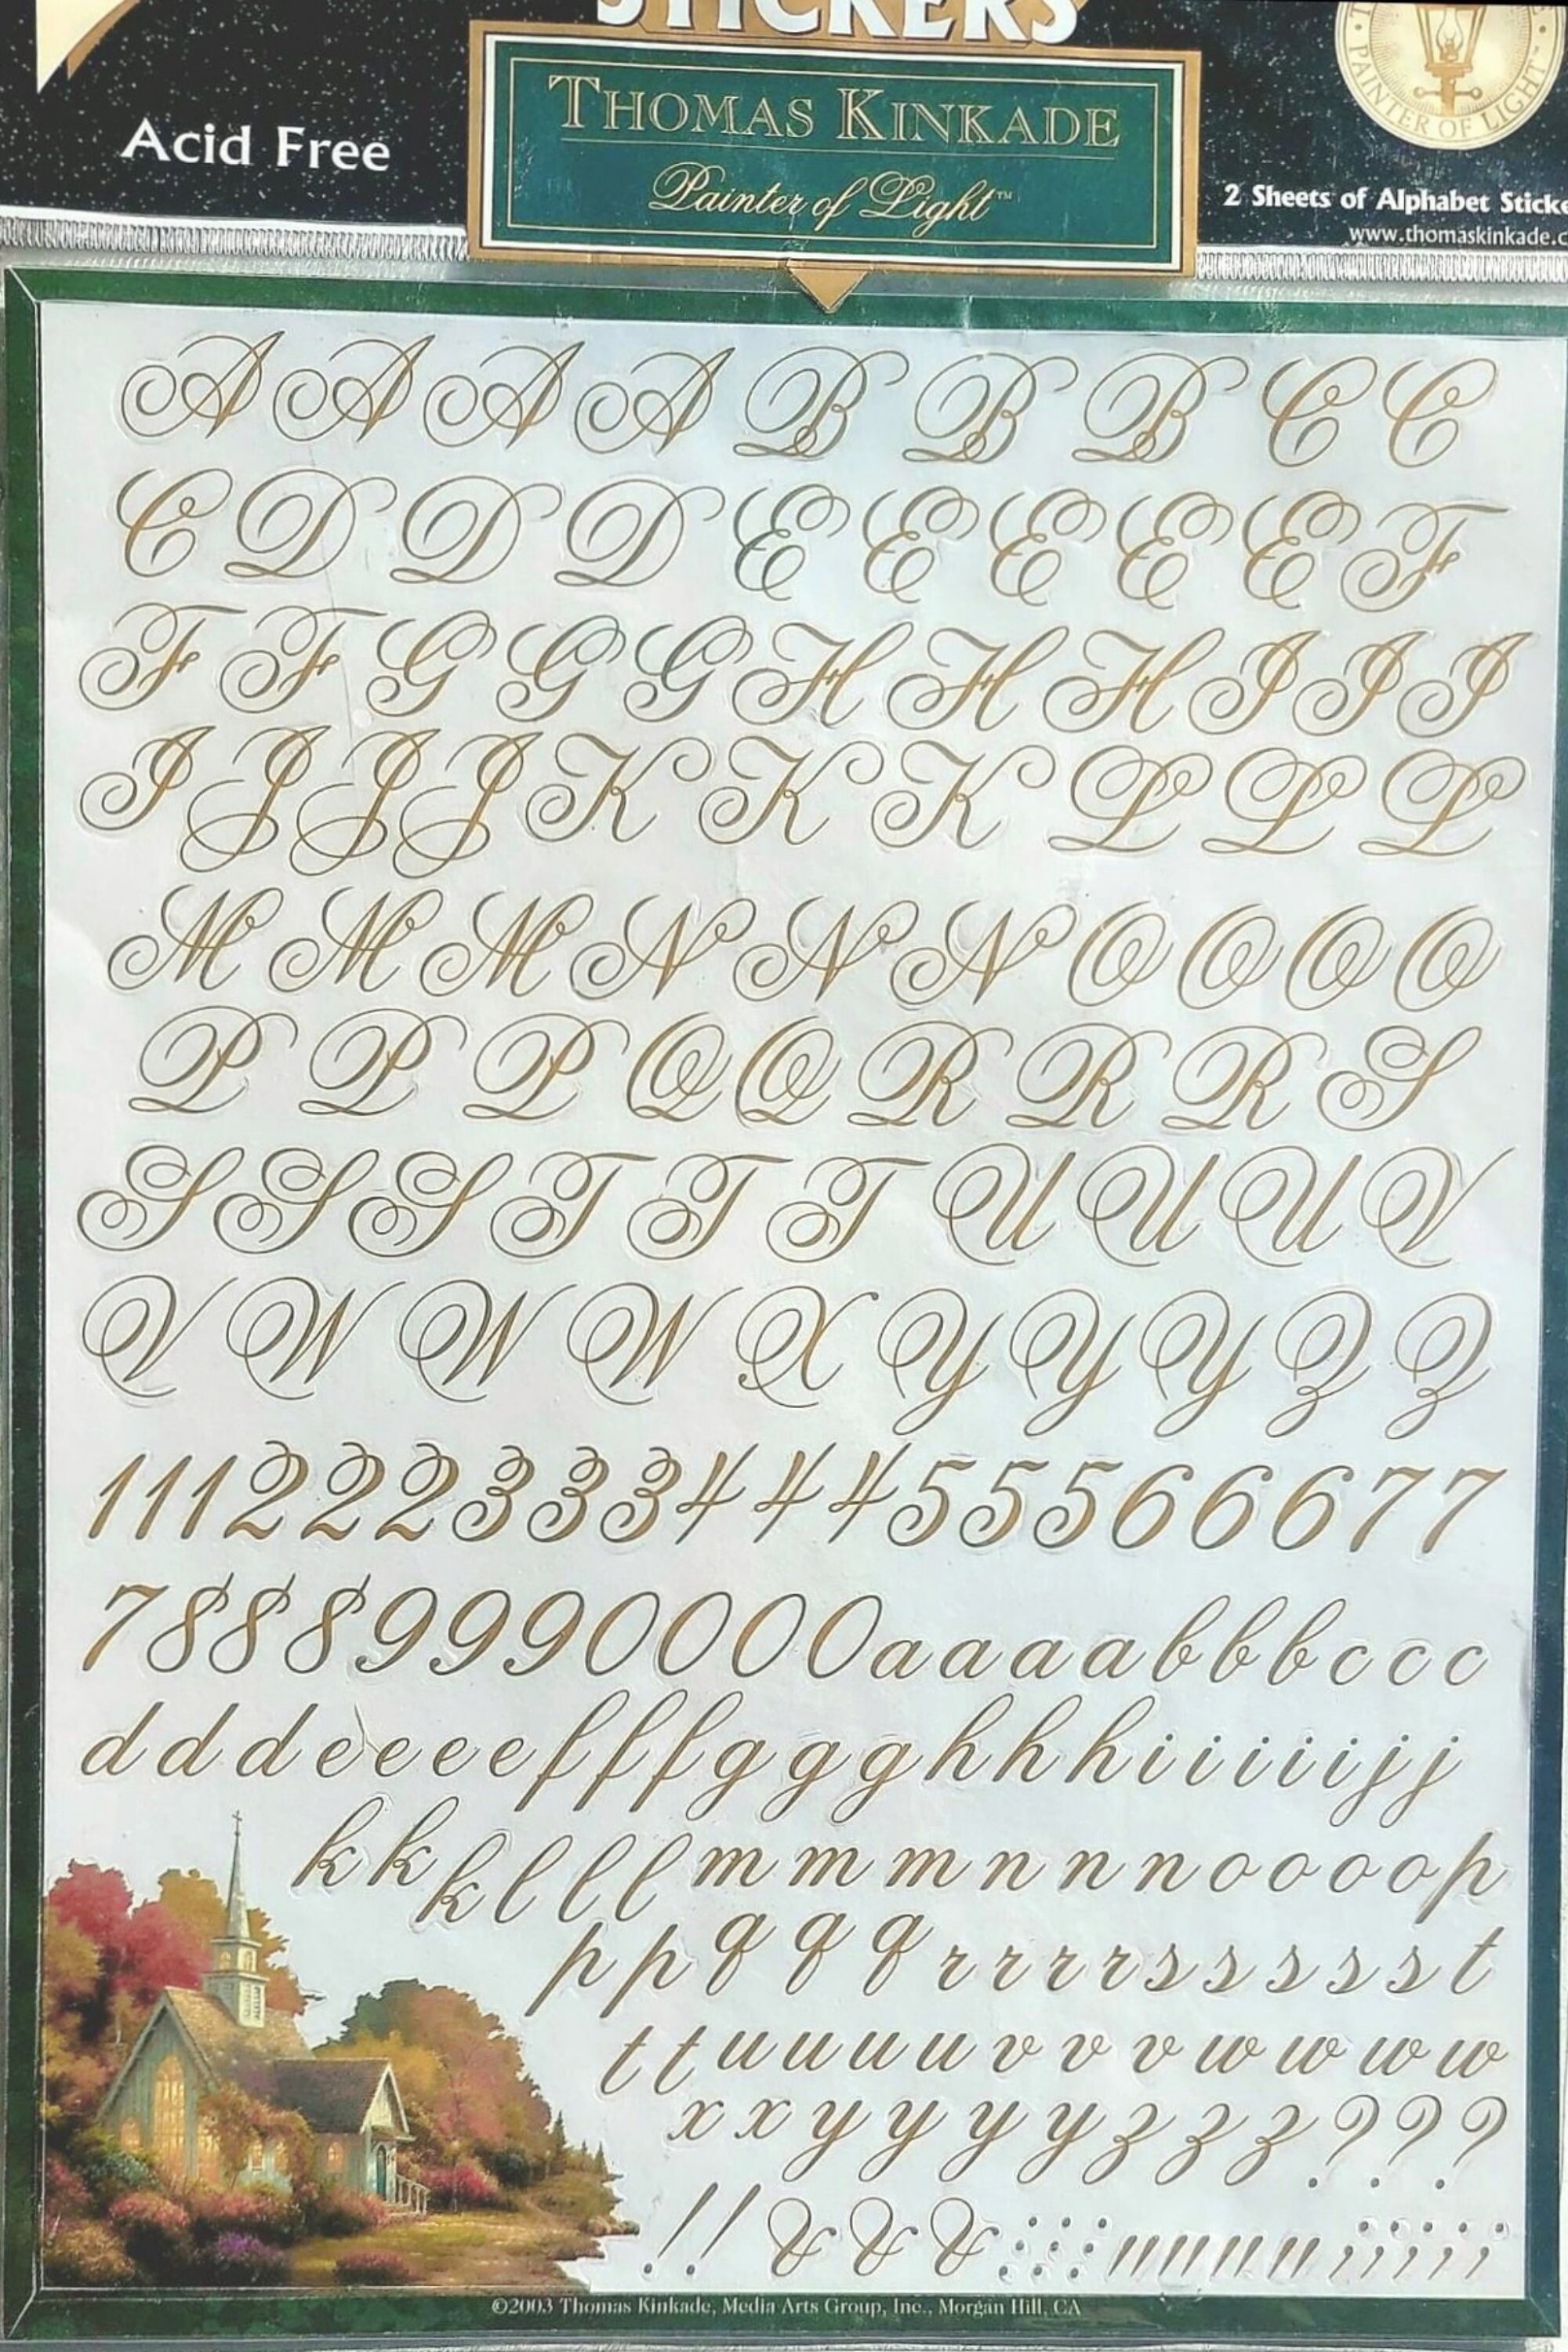 STICKERS
THOMAS KINKADE
Painter of Light™
Acid Free
PAINTER OF LIGHT™
2 Sheets of Alphabet Sticke
www.thomaskinkade.c
A A A A B B B C C
C D D D E E E E E F
F F G G G H H H I I I
I J J J K K K L L L
M M M N N N O O O O
P P P Q Q R R R S
S S S T T T U U U V
V W W W X Y Y Y Z Z
1 1 1 2 2 2 3 3 3 4 4 4 5 5 5 6 6 6 7 7
7 8 8 8 9 9 9 0 0 0 0 a a a a b b b c c c
d d d e e e e f f f g g g h h h i i i i i j j
k k k l l l m m m n n n o o o o p
p p q q q r r r r s s s s s t
t t u u u u v v v w w w w
x x y y y y z z z ? ? ?
! ! & & & : : : " " " " ; ; ; ; ;
©2003 Thomas Kinkade, Media Arts Group, Inc., Morgan Hill, CA